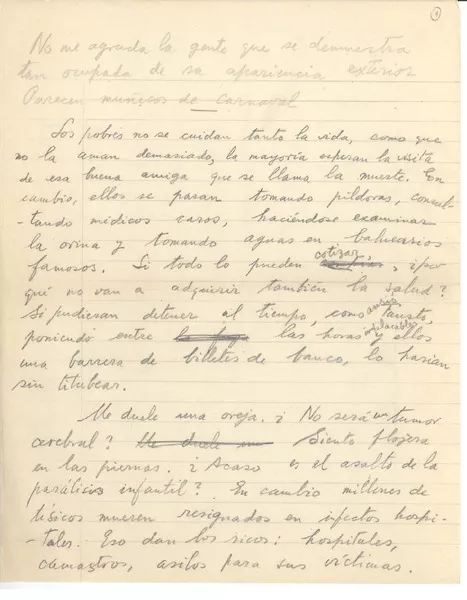 1
No me agrada la gente que se demuestra
tan ocupada de su apariencia exterior
Parecen muñecos de carnaval
Los pobres no se cuidan tanto la vida, como que
no la aman demasiado, la mayoría esperan la visita
de esa buena amiga que se llama la muerte. En
cambio, ellos se pasan tomando píldoras, consul-
-tando médicos caros, haciéndose examinar
la orina y tomando aguas en balnearios
famosos. Si todo lo pueden cotizar, ¿por
qué no van a adquirir tambien la salud?
Si pudieran detener al tiempo, como Fausto,
poniendo entre las horas y ellos
una barrera de billetes de banco, lo harían
sin titubear.
Me duele una oreja. ¿No será un tumor
cerebral? Siento flojera
en las piernas. ¿Acaso es el asalto de la
parálisis infantil? En cambio millones de
tísicos mueren resignados en infectos hospi-
-tales. Eso dan los ricos: hospitales,
camastros, asilos para sus víctimas.